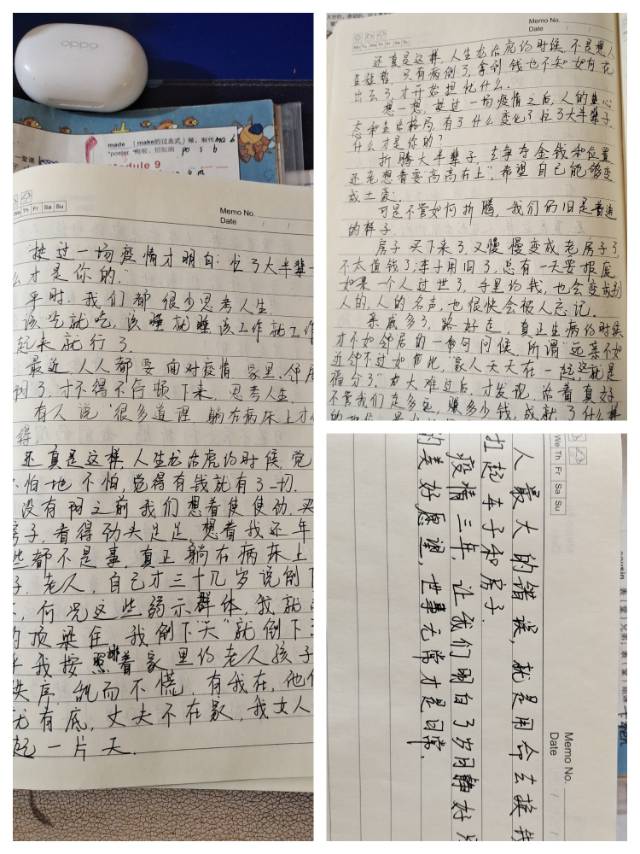 oppo
made (make的过去式) 使, 制作
Module 9
We Th Fr Sa Su
Memo No.
Date
挺过一场疫情才明白: 忙了大半辈
么才是你的.
平时, 我们都很少思考人生.
该吃就吃, 该睡就睡, 该工作就工作
起来就行了.
最近, 人人都要面对疫情, 家里, 邻居
倒了, 才不得不停顿下来, 思考人生.
有人说 "很多道理, 躺在病床上才
得
还真是这样, 人生龙活虎的时候, 觉
不怕地不怕, 觉得有钱就有了一切.
没有阳之前我们想着使使劲, 买
房子, 看得劲头足足, 想着我还年
些都不是事, 真正躺在病床上
子, 老人, 自己才三十几岁说倒下
何况这些弱示群体, 我就
的顶梁住, 我倒下"天"就倒下
我按照着家里的老人孩子
秩序, 忙而不慌, 有我在, 他们
尤有底, 丈夫不在家, 我女人
起一片天.
Memo No.
Date
还真是这样, 人生龙活虎的时候, 不是想人
只有病倒了, 拿到钱也不知如何花
出去了, 才开始担忧什么.
想一想, 挺过一场疫情之后, 人的心
态和生活格局, 有了什么变化? 忙了大半辈子,
什么才是你的?
折腾大半辈子, 去争夺金钱和位置
还老想着要高高在上, 希望自己能够变
成土豪.
可是不管如何折腾, 我们仍旧是普通
的样子.
房子买下来了, 又慢慢变成老房子了
不太值钱了; 车子用旧了, 总有一天要报废
如果一个人过世了, 手里的钱, 也会变成别
人的, 人的名声, 也很快会被人忘记.
亲戚多了, 路好走, 真正生病的时候
才不如邻居的一句问候, 所谓"远亲不如
近邻不过如此, 家人天天在一起, 这就是
福分了." 大难过后, 才发现, 活着真好
不管我们走多远, 赚多少钱, 成就了什么样
We Th Fr Sa Su
Memo No.
Date
人最大的错误, 就是用命去换
扛起车子和房子.
疫情三年, 让我们明白了岁月静好只
的美好愿望, 世事无常才是日常.